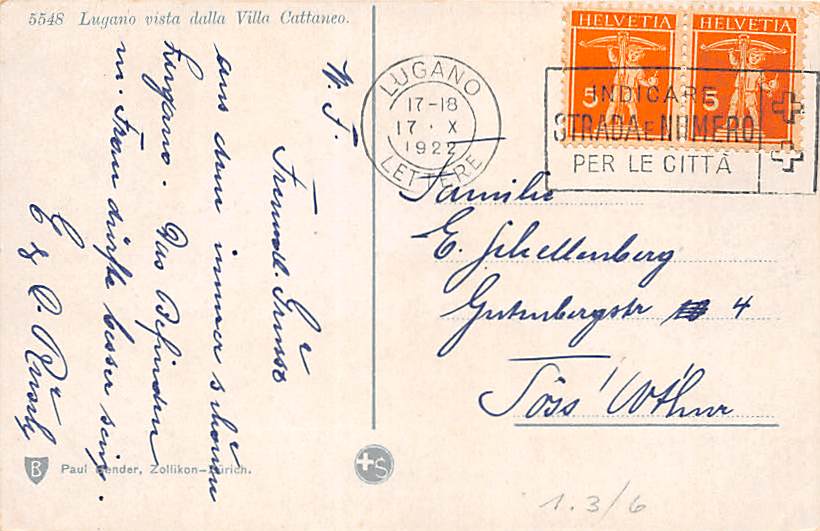 5548 Lugano vista dalla Villa Cattaneo.
W. F.
Freundl. Grüsse
aus dem immer schönen
Lugano. Das Befinden
m. Frau dürfte besser sein.
E & L.
Familie
E. Schellenberg
Gutenbergstr 4
Töss / W'thur
HELVETIA HELVETIA
5 5
LUGANO
17-18
17 · X
1922
LETTERE
INDICARE
STRADA E NUMERO
PER LE CITTÀ
B
Paul Bender, Zollikon-Zürich.
S
1.3/6